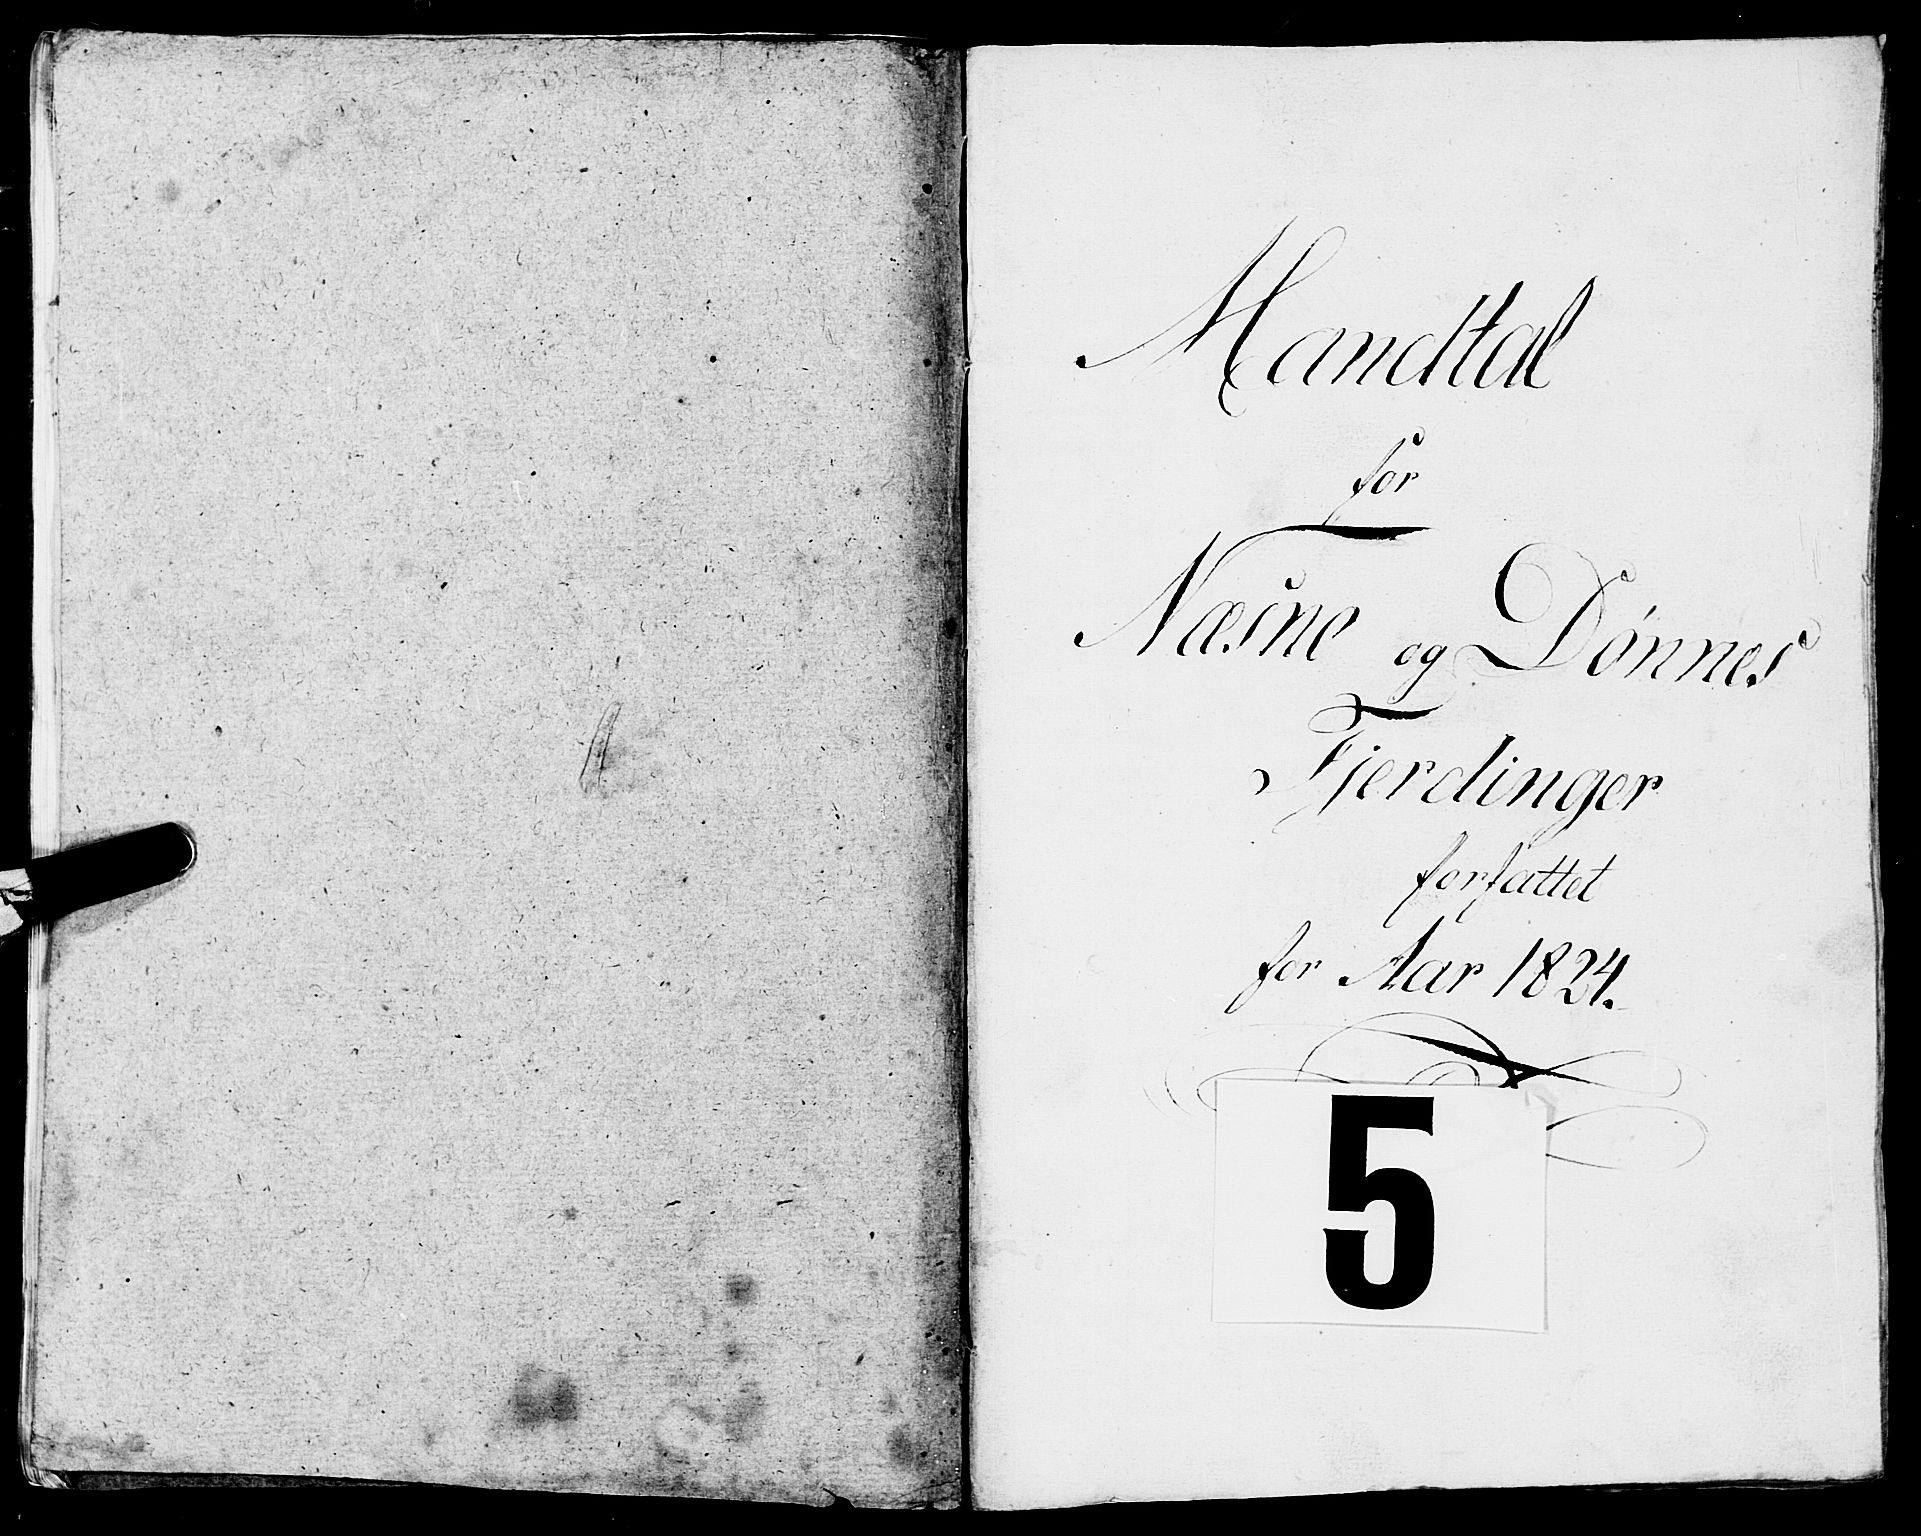 Mandtal
for
Næsne og Dønnes
Fjerdinger
forfattet
for Aar 1824.
5